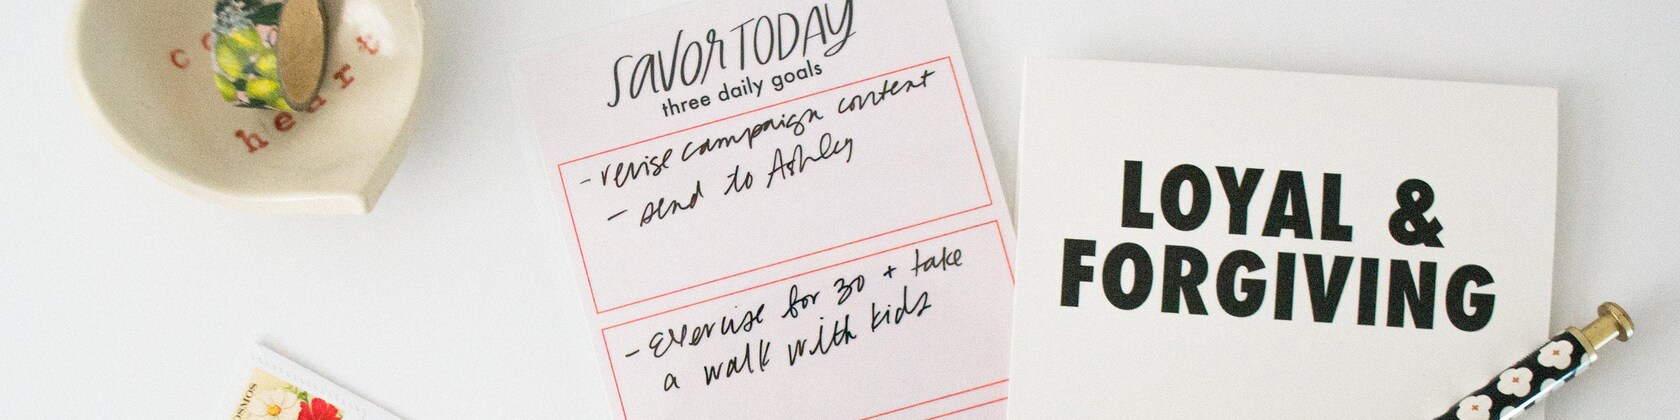 heart
savor TODAY
three daily goals
- revise campaign content
- send to Ashley
- Exercise for 30 + take
a walk with kids
LOYAL &
FORGIVING